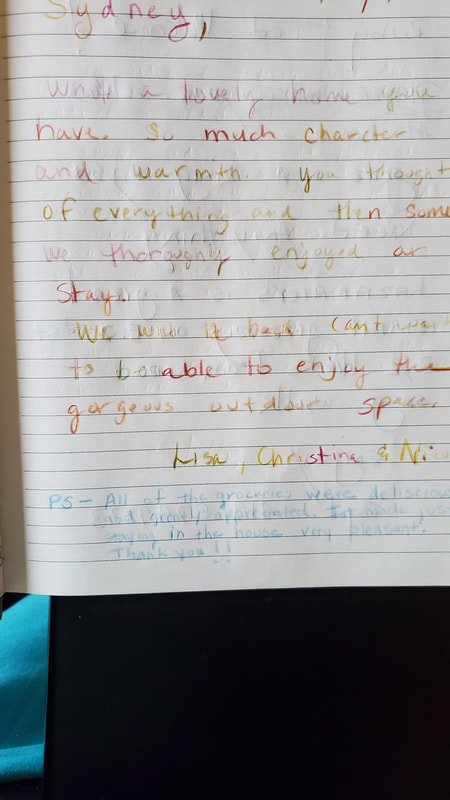 Sydney,
What a lovely home you
have. So much charcter
and warmth. You thought
of everything and then some
we thoroughly enjoyed ar
stay.
We will be back. Cant wait
to be able to enjoy the
gorgeous outdoor space.
Lisa, Christina &
PS - All of the groceries were
and greatly It made just
staying in the house very pleasant.
Thank you!!